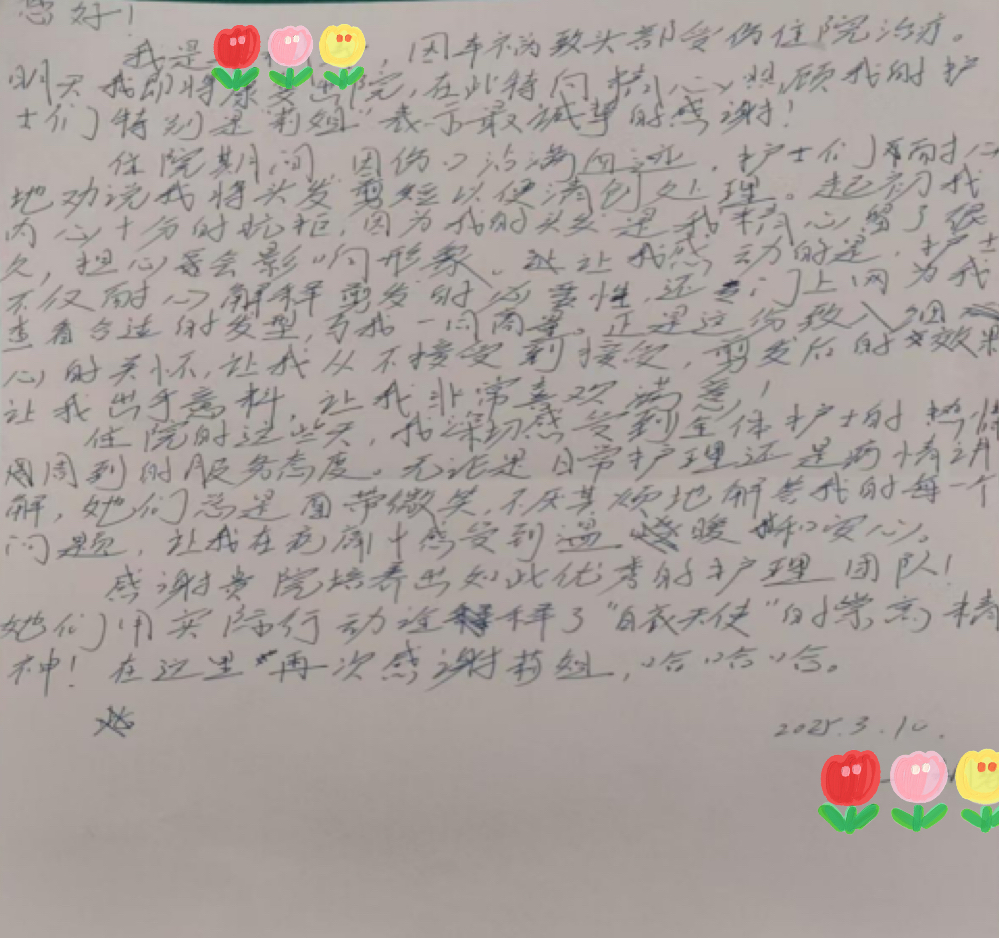 您好！
我是 ，因车祸致头部受伤住院治疗。
明天我即将康复出院，在此特向精心照顾我的护
士们特别是“莉姐”表示最诚挚的感谢！
住院期间，因伤口沾满血迹，护士们耐心
地劝说我将头发剪短以便清创处理。起初我
内心十分的抗拒，因为我的头发是我精心留了很
久，担心会影响形象。让我感动的是，护士
不仅耐心解释剪发的必要性，还上网为我
查看合适的发型，与我一同商量。正是这份致入细
心的关怀，让我从不接受到接受，剪发后的效果
让我出乎意料，让我非常喜欢满意！
住院的这些天，我深切感受到全体护士的热情
周到的服务态度。无论是日常护理还是病情讲
解，她们总是面带微笑，不厌其烦地解答我的每一个
问题，让我在病痛中感受到温暖和安心。
感谢贵院培养出如此优秀的护理团队！
她们用实际行动诠释了“白衣天使”的崇高精
神！在这里再次感谢莉姐，哈哈哈。
2025.3.10.